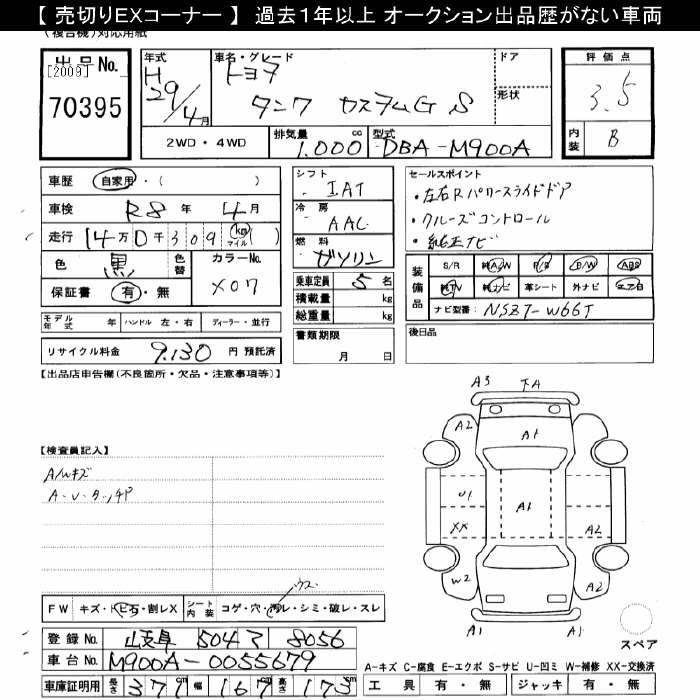 【 売切りEXコーナー 】 過去1年以上 オークション出品歴がない車両
(複合機)対応用紙
出品No.
[2009]
70395
年式
H 29/4月
車名・グレード
トヨタ
タンク カスタムG S
ドア
形状
評価点
3.5
内装
B
2WD・4WD
排気量
1.000 cc
型式
DBA-M900A
車歴
自家用・( )
車検
R8年4月
走行
14万0千309(km マイル)( )
色
黒
色替
カラーNo.
X07
保証書
有・無
シフト
IAT
冷房
AAC
燃料
ガソリン
乗車定員 5名
積載量 kg
総重量 kg
書類期限
月 日
セールスポイント
・左右Rパワースライドドア
・クルーズコントロール
・純正ナビ
装備品
S/R 純A/W P/S P/W ABS
純TV 純ナビ 革シート 外ナビ エアB
ナビ型番: NSZT-W66T
後日品
モデル年式 年 ハンドル 左・右 ディーラー・並行
リサイクル料金 9.130 円 預託済
【出品店申告欄(不良箇所・欠品・注意事項等)】
【検査員記入】
A/Wキズ
A・U・タッチP
A3
下A
A2
A1
U1
A1
XX
A2
W2
A2
A1
A1
スペア
FW キズ・トビ石・割レX
シート内装 コゲ・穴・汚レ・シミ・破レ・スレ
登録No. 岐阜 504 マ 8056
車台No. M900A-0055679
車庫証明用 長さ 371cm 幅 167cm 高さ 173cm
A-キズ C-腐食 E-エクボ S-サビ U-凹ミ W-補修 XX-交換済
工具 有・無 ジャッキ 有・無